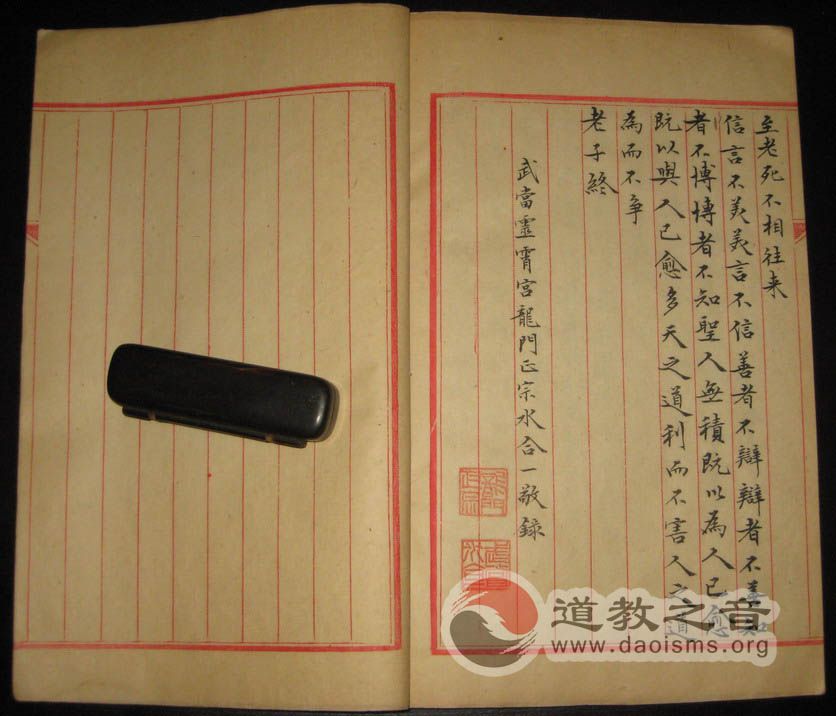 至老死不相往来
信言不美美言不信善者不辯辯者不善知
者不博博者不知聖人無積既以為人已愈
既以與人已愈多天之道利而不害人之道
為而不争
老子終
武當靈霄宮龍門正宗水合一敬錄
道教之音
www.daoisms.org